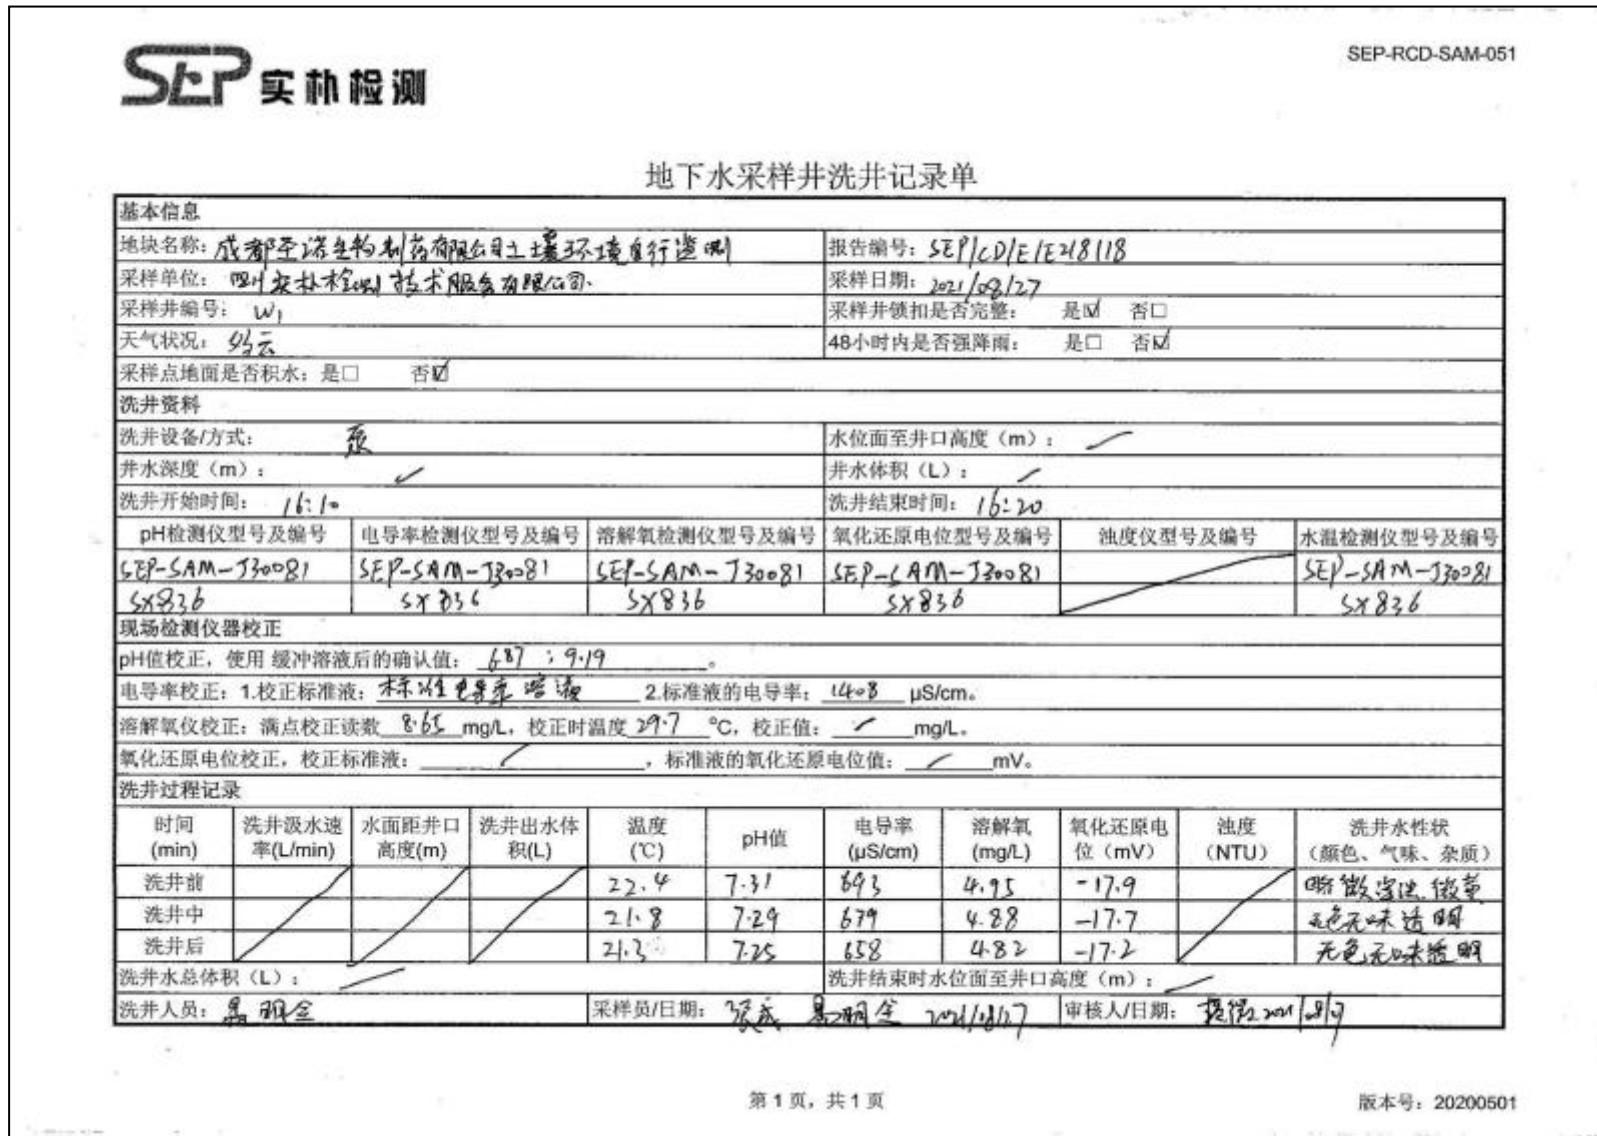 SEP 实朴检测
SEP-RCD-SAM-051
地下水采样井洗井记录单
基本信息
地块名称：成都圣诺生物制药有限公司土壤环境自行监测 报告编号：SEP/CD/E/E218118
采样单位：四川实朴检测技术服务有限公司. 采样日期：2021/08/27
采样井编号：W1 采样井锁扣是否完整： 是☑ 否□
天气状况：多云 48小时内是否强降雨： 是□ 否☑
采样点地面是否积水：是□ 否☑
洗井资料
洗井设备/方式： 泵 水位面至井口高度（m）： /
井水深度（m）： / 井水体积（L）： /
洗井开始时间： 16:10 洗井结束时间：16:20
pH检测仪型号及编号 电导率检测仪型号及编号 溶解氧检测仪型号及编号 氧化还原电位型号及编号 浊度仪型号及编号 水温检测仪型号及编号
SEP-SAM-J30081 SEP-SAM-J30081 SEP-SAM-J30081 SEP-SAM-J30081 / SEP-SAM-J30081
SX836 SX836 SX836 SX836 SX836
现场检测仪器校正
pH值校正，使用 缓冲溶液后的确认值： 6.87 ；9.19 。
电导率校正：1.校正标准液：标准电导率溶液 2.标准液的电导率：1408 μS/cm。
溶解氧仪校正：满点校正读数 8.65 mg/L，校正时温度 29.7 °C，校正值： / mg/L。
氧化还原电位校正，校正标准液： / ，标准液的氧化还原电位值： / mV。
洗井过程记录
时间 洗井汲水速 水面距井口 洗井出水体 温度 pH值 电导率 溶解氧 氧化还原电 浊度 洗井水性状
(min) 率(L/min) 高度(m) 积(L) (℃) (μS/cm) (mg/L) 位（mV） （NTU） （颜色、气味、杂质）
洗井前 / / / 22.4 7.31 693 4.95 -17.9 / 微浑浊 微黄
洗井中 21.8 7.29 679 4.88 -17.7 无色无味透明
洗井后 21.3 7.25 658 4.82 -17.2 无色无味透明
洗井水总体积（L）： / 洗井结束时水位面至井口高度（m）： /
洗井人员： 明全 采样员/日期： 明全 2021/08/27 审核人/日期： 2021/08/27
第 1 页，共 1 页
版本号：20200501